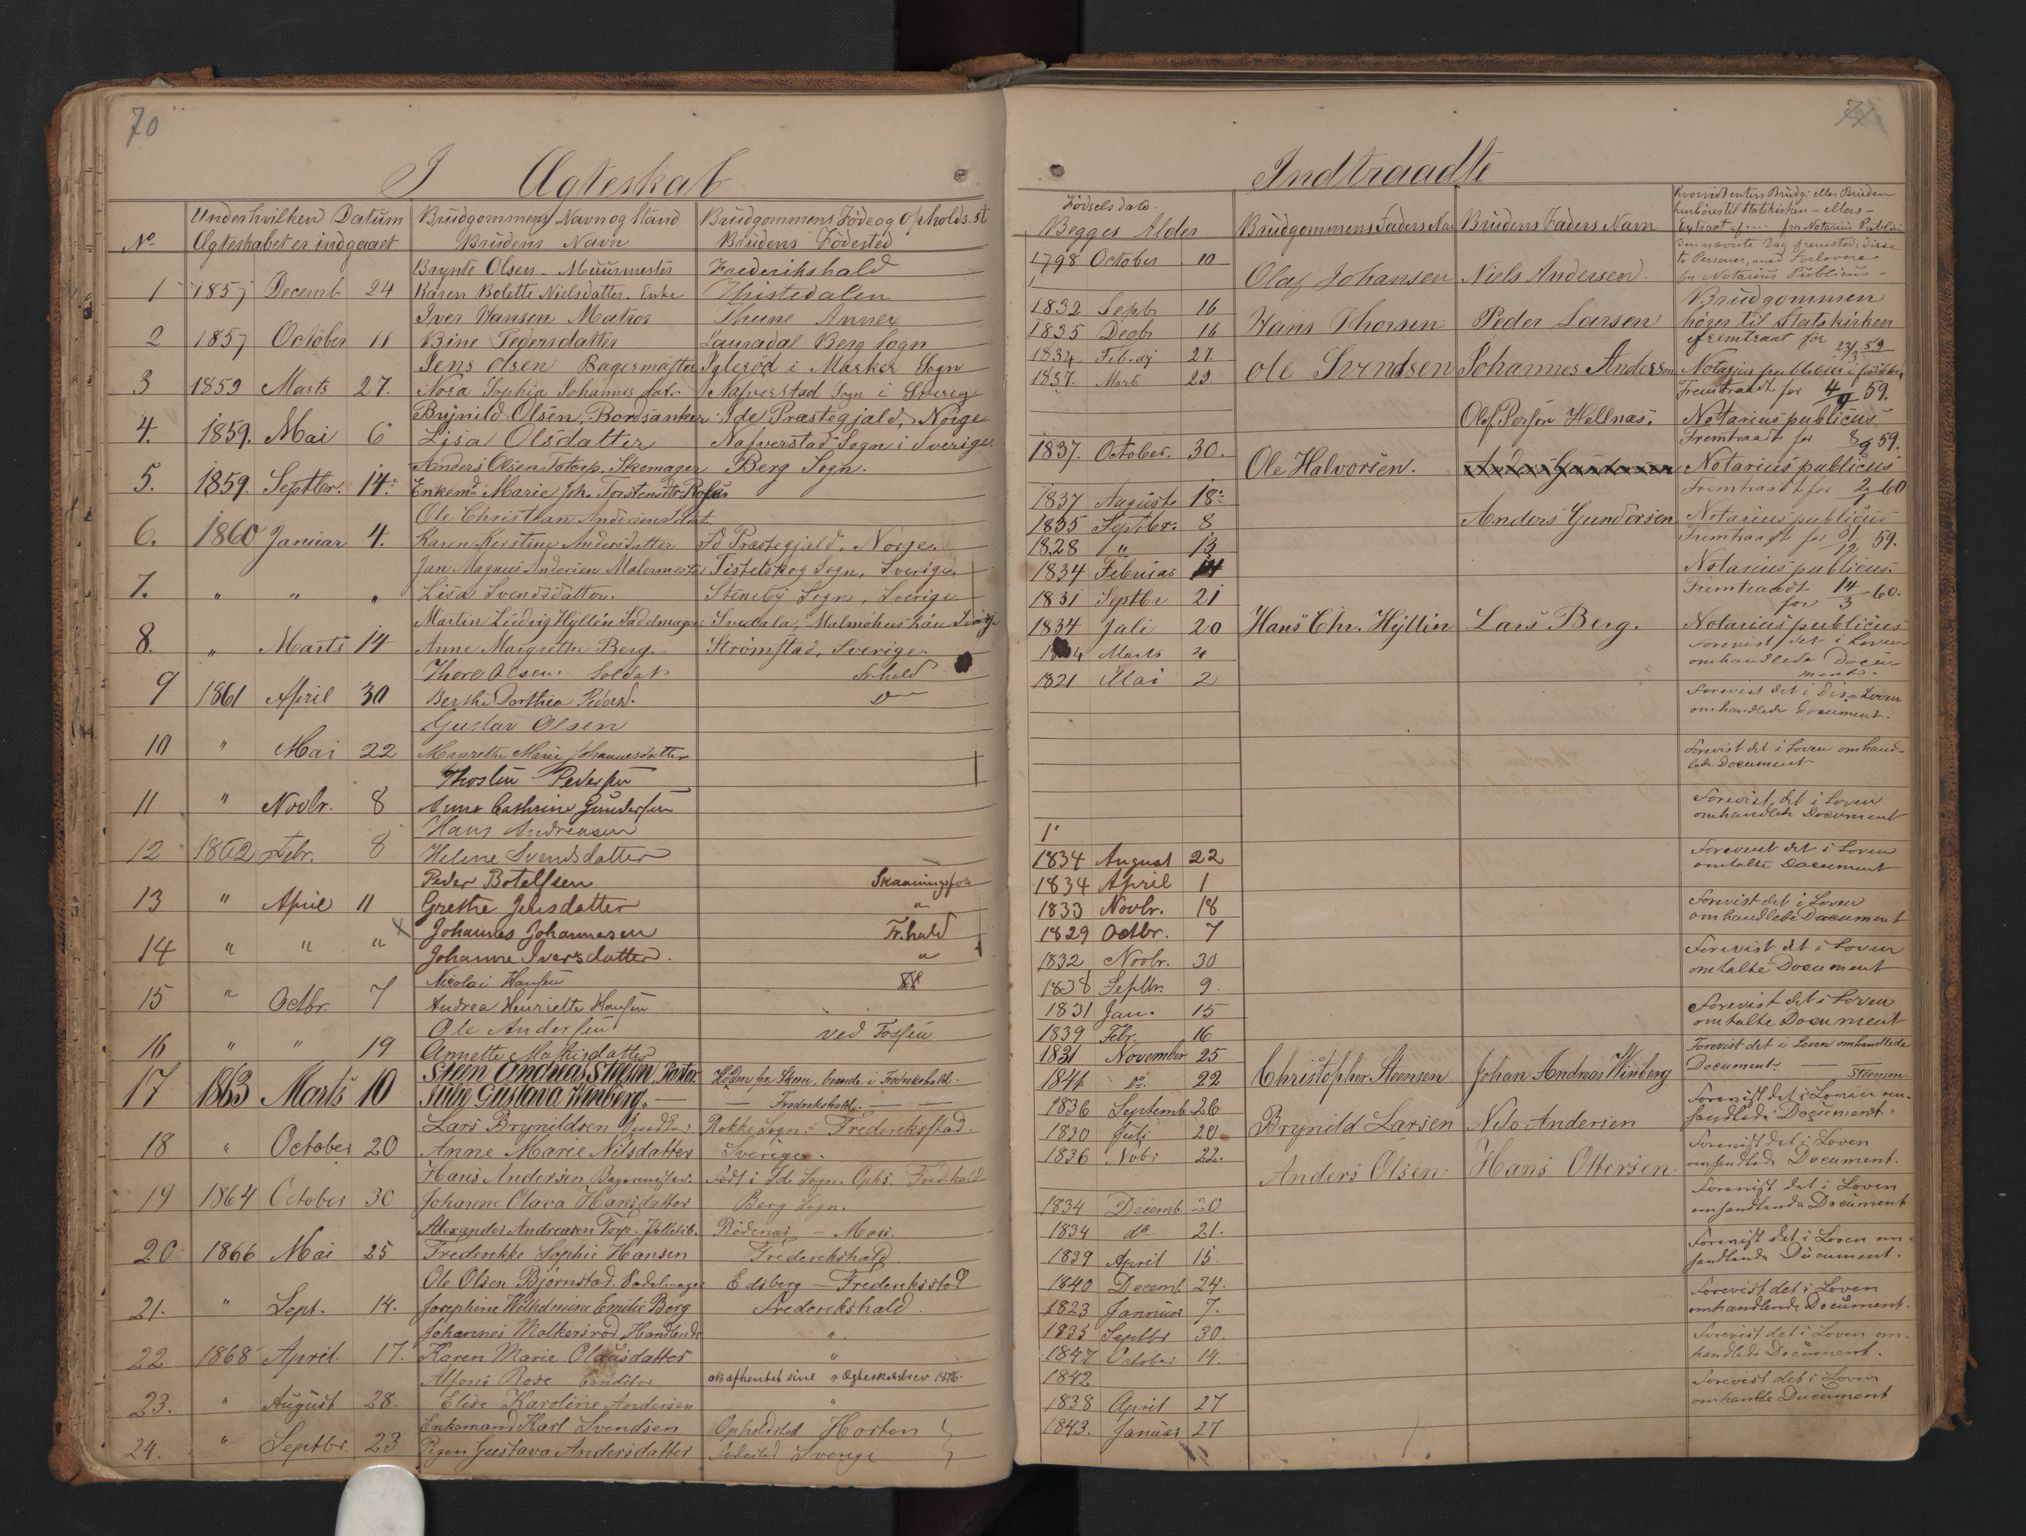 70
I Ægteskab
No
Under hvilken Datum
Ægteskabet er indgaaet
Brudgommens Navn og Stand
Brudens Navn
Brudgommens Føde og Opholds.st
Brudens Fødested
Brynte Olsen - Muurmester Frederikshald
1 1857 Decemb 24 Karen Bolette Nielsdatter. Enke Thistedalen
Iver Hansen Matros Thune Annex
2 1857 October 11 Bine Pedersdatter Berg Sogn
Jens Olsen Bagermester i Marker Sogn
3 1859 Marts 27. Johannesdat. Nafverstad Sogn i Sverige
Brynild Olsen, Ide Præstegjald, Norge
4. 1859. Mai 6 Lisa Olsdatter Nafverstad Sogn i Sverige
Anders Olsen Skomager Berg Sogn.
5. 1859. Septbr. 14. Enkemd Marie Joh.
Ole Christian Andersen
6. 1860 Januar 4. Karen Kerstine Andersdatter Præstegjald. Norge.
Jan Magnus Andersen Malermester Sogn, Sverige.
7. " " " Lisa Svendsdatter. Steneby Sogn, Sverige.
Martin Ludvig Hyllin Sadelmager Svedala, Malmöhus Län
8. " Marts 14 Anne Margrethe Berg. Strømstad, Sverige.
Thore Olsen. Soldat Fr.hald
9 1861 April 30 Berthe Dorthea Pedersd.
Gustav Olsen
10 " Mai 22 Margrethe Marie Johannesdatter
Thosten Pedersen
11 " Novbr. 8 Anne Cathrine Gundersen
Hans Andreasen
12 1862 Febr. 8 Helene Svendsdatter
Peder Botelfsen Skaaningsfos
13 " April 11 Grethe Jensdatter "
Johannes Johannesen Fr.hald
14 " " " x Johanne Iversdatter. "
Nicolai Hansen
15 " Octbr. 7 Andrea Henriette Hansen
Ole Andersen ved Fossen
16 " " 19 Annette Mathisdatter
Steen Andreas Steensen, Pastor. Holden pr Skien, boende i Fredrikshald.
17 1863 Marts 10 Julie Gustava Winberg. — Fredrikshald. —
Lars Brynildsen Rokke Sogn. Frederiksstad.
18 " October 20 Anne Marie Nilsdatter Sverige.
Hans Andersen Bagermester Født i Ide Sogn. Opks. Fredhald
19 1864 October 30 Johanne Olava Hansdatter Berg Sogn.
Alexander Andreasen Rødenæs — Moss.
20 1866 Mai 25 Frederikke Sophie Hansen Frederikshald
Ole Olsen Bjørnstad. Sadelmager Edsberg — Frederiksstad
21. " Sept. 14. Josephine Wilhelmine Emilie Berg Frederikshald.
Johannes Molkersrød Handlende "
22 1868 April 17. Karen Marie Olausdatter "
Alfons Rose Conditor
23. " August 28. Elise Karoline Andersen "
Enkemand Karl Svendsen Opholdsted Horten
24. " Septbr. 23 Pigen Gustava Andersdatter Fødested Sverige
71
Indtraadte
Fødselsdato.
Begges Alder
Brudgommens Faders Nav
Brudens Faders Navn
Hvorvidt enten Brudg: eller Bruden
henhører til Statskirken -
Extract af fra Notarius Public
den nævnte Dag fremstod, disse
to Personer, med Forlovere
fra Notarius Publicus -
1798 October 10
Olaf Johansen Niels Andersen.
Brudgommen
1832 Septbr 16
hører til Statskirken
1835 Decbr 16 Hans Thorsen Peder Larsen
Fremtraat for 23/3 59
1834 Feb. 27.
1837. Marts 29. Ole Svendsen Johannes Anderson Notarius publicus
Fremtraadt for 4/4 59.
Olof Persson Hellnäs. Notarius publicus
Fremtraadt for 8/9 59.
1837. October. 30. Ole Halvorsen. Notarius publicus
Fremtraadt for 2/1 60
1837 Auguste 18
Anders Gundersen Notarius publicus
1835 Septbr. 8
Fremtraadt for 31/12 59.
1828 " 13
Notarius publicus.
1834 Februar 14
Fremtraadt for 14/3 60.
1831 Septbr 21
1834 Juli 20 Hans Chr. Hyllin Lars Berg. Notarius publicus
Marts
Forevist det i Loven
omhandlede Docu-
ment.
1821 Mai 2
Forevist det i Loven
omhandlede Document.
Forevist det i Loven omhand-
lede Document
Forevist det i Loven
omhandlede Document
1834 August 22
Forevist det i Loven
omtalte Document
1834 April 1
1833 Novbr. 18
Forevist det i Loven
omhandlede Document
1829 Octbr. 7
1832 Novbr. 30
Forevist det i Loven
omtalte Document
1838 Septbr. 9.
1831 Jan. 15
Forevist det i Loven
omtalte Document
1839 Febr. 16
Forevist det i Loven omhandlede
Document. — Steensen
1831 November 25 Christopher Steensen Johan Andreas Winberg
1841 do. 22
1836 Septemb. 26
Forevist det i Loven om-
handlede Document.
1830 Juli 20 Brynild Larsen Nils Andersen
1836 Novbr 22.
Forevist det i Loven
omhandlede Document.
Anders Olsen Hans Ottersen.
1834 Decemb. 20
Forevist det i Loven
omhandlende Document
1834 do 21.
1839 April 15.
Forevist det i Loven om-
handlende Document.
1840 Decemb. 24.
1823 Januar 7.
Forevist det i Loven
omhandlende Document.
1835 Septbr 30.
1847 October 14.
Forevist det i Loven om-
handlede Document.
1842
1838 April 27
Forevist det i Loven
omhandlede Document
1843. Januar 27